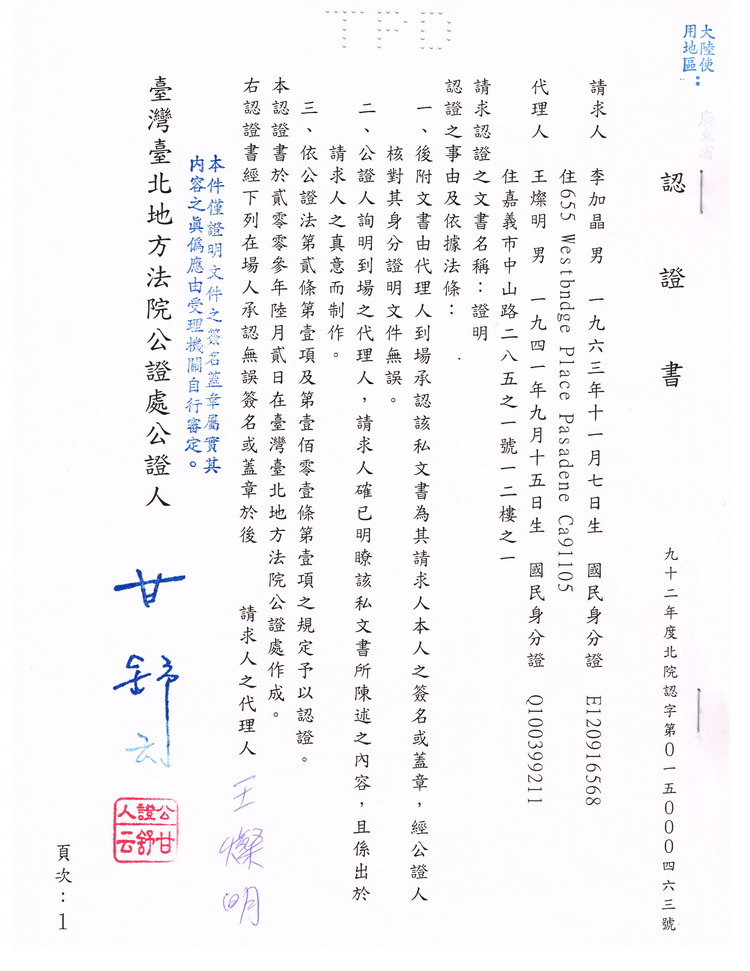 TPD
大陸使
用地區：
廣東省
認證書
九十二年度北院認字第0一五000四六三號
請求人　李加晶　男　一九六三年十一月七日生　國民身分證　E120916568
住655 Westbndge Place Pasadene Ca91105
代理人　王燦明　男　一九四一年九月十五日生　國民身分證　Q100399211
住嘉義市中山路二八五之一號一二樓之一
請求認證之文書名稱：證明
認證之事由及依據法條：
一、後附文書由代理人到場承認該私文書為其請求人本人之簽名或蓋章，經公證人
核對其身分證明文件無誤。
二、公證人詢明到場之代理人，請求人確已明瞭該私文書所陳述之內容，且係出於
請求人之真意而制作。
三、依公證法第貳條第壹項及第壹佰零壹條第壹項之規定予以認證。
本認證書於貳零零參年陸月貳日在臺灣臺北地方法院公證處作成。
右認證書經下列在場人承認無誤簽名或蓋章於後
請求人之代理人　王燦明
本件僅證明文件之簽名蓋章屬實其
內容之真偽應由受理機關自行審定。
臺灣臺北地方法院公證處公證人
甘舒云
公證人
甘舒云
頁次：1